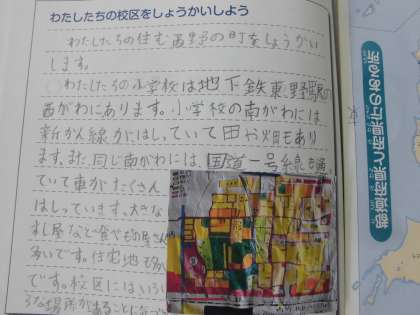 わたしたちの校区をしょうかいしよう
わたしたちの住む西野の町をしょうかい
します。
わたしたちの小学校は地下鉄東野駅の
西がわにあります。小学校の南がわには
新かん線がはしっていて田や畑もあり
ます。また、同じ南がわには、国道一号線も通
ていて車がたくさん
はしっています。大きな
すし屋など食べもの屋さん
多いです。住宅地も多い
です。校区にはいろい
ろな場所があることに
都道府県と都道府県庁のある所